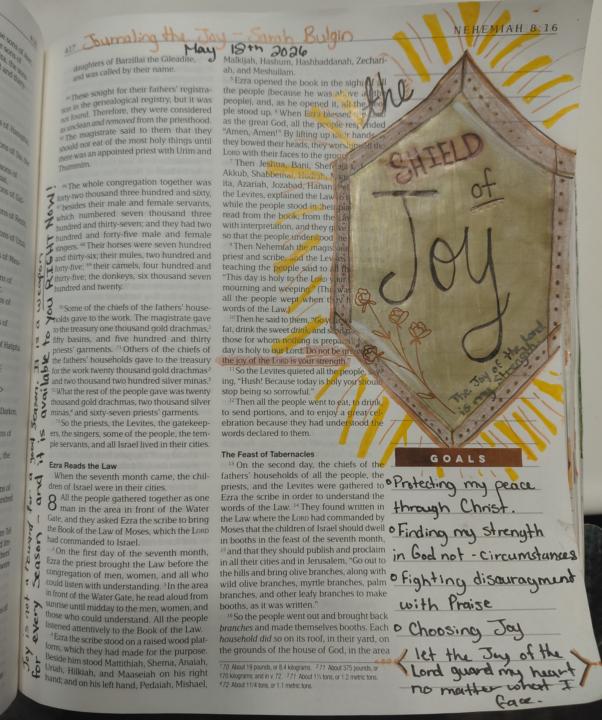 417 Journaling the Joy - Sarah Bulgin
May 18th 2026
NEHEMIAH 8:16
daughters of Barzillai the Gileadite,
and was called by their name.
64 These sought for their fathers' registra-
tion in the genealogical registry, but it was
not found. Therefore, they were considered
as unclean and removed from the priesthood.
65 The magistrate said to them that they
should not eat of the most holy things until
there was an appointed priest with Urim and
Thummim.
66 The whole congregation together was
forty-two thousand three hundred and sixty,
67 besides their male and female servants,
which numbered seven thousand three
hundred and thirty-seven; and they had two
hundred and forty-five male and female
singers. 68 Their horses were seven hundred
and thirty-six; their mules, two hundred and
forty-five; 69 their camels, four hundred and
thirty-five; the donkeys, six thousand seven
hundred and twenty.
70 Some of the chiefs of the fathers' house-
holds gave to the work. The magistrate gave
to the treasury one thousand gold drachmas,
fifty basins, and five hundred and thirty
priests' garments. 71 Others of the chiefs of
the fathers' households gave to the treasury
for the work twenty thousand gold drachmas
and two thousand two hundred silver minas.
72 What the rest of the people gave was twenty
thousand gold drachmas, two thousand silver
minas, and sixty-seven priests' garments.
73 So the priests, the Levites, the gatekeep-
ers, the singers, some of the people, the tem-
ple servants, and all Israel lived in their cities.
Ezra Reads the Law
When the seventh month came, the chil-
dren of Israel were in their cities.
8 All the people gathered together as one
man in the area in front of the Water
Gate, and they asked Ezra the scribe to bring
the Book of the Law of Moses, which the LORD
had commanded to Israel.
2 On the first day of the seventh month,
Ezra the priest brought the Law before the
congregation of men, women, and all who
could listen with understanding. 3 In the area
in front of the Water Gate, he read aloud from
sunrise until midday to the men, women, and
those who could understand. All the people
listened attentively to the Book of the Law.
4 Ezra the scribe stood on a raised wood plat-
form, which they had made for the purpose.
Beside him stood Mattithiah, Shema, Anaiah,
Uriah, Hilkiah, and Maaseiah on his right
hand; and on his left hand, Pedaiah, Mishael,
Joy is not a reward for a good season. It is a weapon
for every season and it is available to you RIGHT NOW!
Malkijah, Hashum, Hashbaddanah, Zechari-
ah, and Meshullam.
5 Ezra opened the book in the sight of all
the people (because he was above all the
people), and, as he opened it, all the peo-
ple stood up. 6 When Ezra blessed
as the great God, all the people responded
"Amen, Amen!" By lifting up their hands,
they bowed their heads, they worshipped the
LORD with their faces to the ground.
7 Then Jeshua, Bani,
Akkub, Shabbethai, Hodiah,
ita, Azariah, Jozabad, Hanan,
the Levites, explained the Law to
while the people stood in their
read from the book, from the
with interpretation, and they
so that the people understood
9 Then Nehemiah the magis
priest and scribe, and the Levites
teaching the people said to all
"This day is holy to the LORD
mourning and weeping. (This was
all the people wept when
words of the
10 Then he said to them, "Go
fat, drink the sweet drink, and
those for whom nothing is prepared
day is holy to our Lord. Do not be
the joy of the LORD is your strength."
11 So the Levites quieted all the people,
ing, "Hush! Because today is holy you should
stop being so sorrowful."
12 Then all the people went to eat, to drink,
to send portions, and to enjoy a great cel-
ebration because they had understood the
words declared to them.
The Feast of Tabernacles
13 On the second day, the chiefs of the
fathers' households of all the people, the
priests, and the Levites were gathered to
Ezra the scribe in order to understand the
words of the Law. 14 They found written in
the Law where the LORD had commanded by
Moses that the children of Israel should dwell
in booths in the feast of the seventh month,
15 and that they should publish and proclaim
in all their cities and in Jerusalem, "Go out to
the hills and bring olive branches, along with
wild olive branches, myrtle branches, palm
branches, and other leafy branches to make
booths, as it was written."
16 So the people went out and brought back
branches and made themselves booths. Each
household did so on its roof, in their yard, on
the grounds of the house of God, in the area
70 About 19 pounds, or 8.4 kilograms. 71 About 375 pounds, or
170 kilograms; and in v. 72. 71 About 1¼ tons, or 1.2 metric tons.
72 About 11/4 tons, or 1.1 metric tons.
the
SHIELD
of
Joy
The Joy of the Lord
is my Strength
GOALS
Protecting my peace
through Christ.
Finding my strength
in God not - circumstances
Fighting disouragment
with Praise
Choosing Joy
let the Joy of the
Lord guard my heart
no matter what I
face.